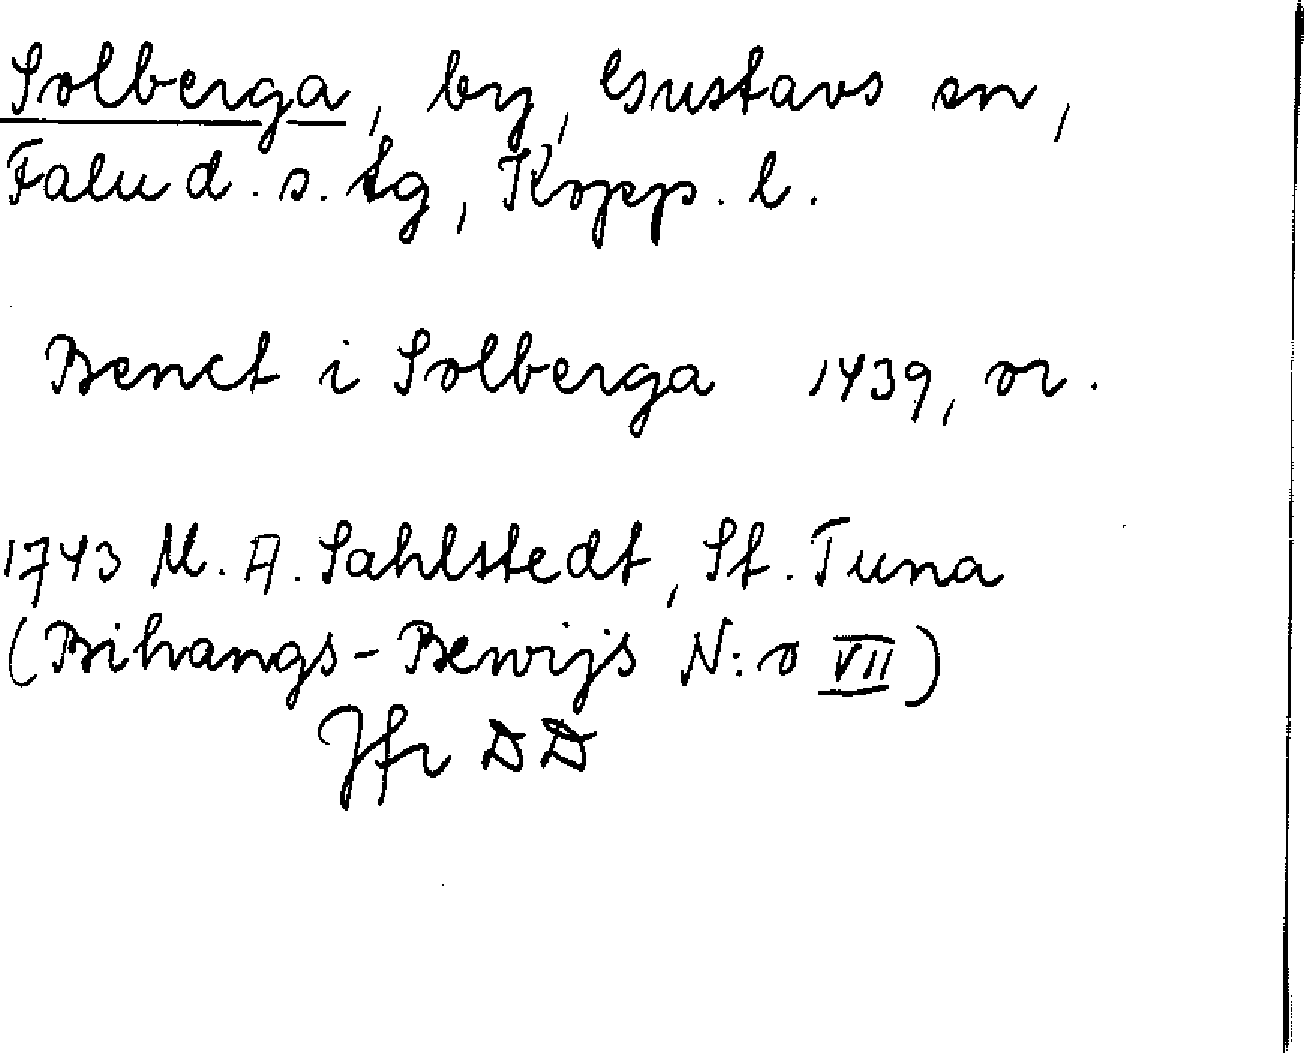 Solberga, by, Gustavs sn,
Falu d. s. tg, Kopp. l.
Benct i Solberga 1439, or.
1743 M. A. Sahlstedt, St. Tuna
(Bihangs-Bewijs N:o VII)
Jfr DD